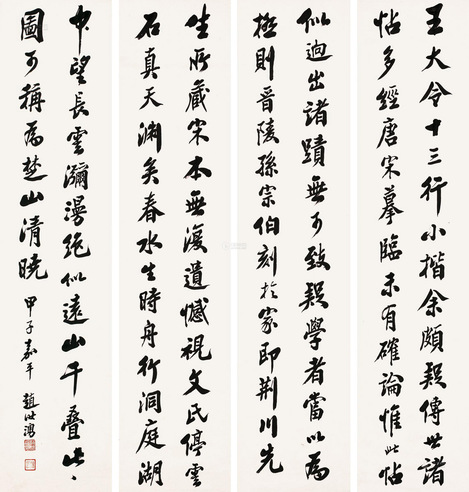 王大令十三行小楷余頗疑傳世諸
帖多經唐宋摹臨未有確論惟此帖
似迥出諸蹟無可致疑學者當以為
極則晉陵孫宗伯刻於家即荆川先
生所藏宋本無復遺憾視文氏停雲
石真天淵矣春水生時舟行洞庭湖
中望長雲瀰漫絶似遠山千叠此
圖可稱為楚山清曉
甲子嘉平 趙世鴻